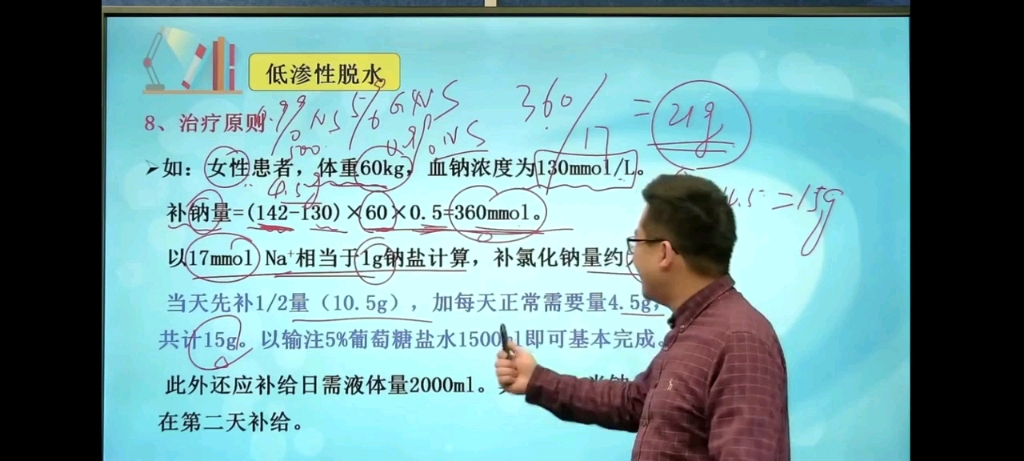 低渗性脱水
8、治疗原则
0.9% NS 5% GNS
500 0.9% NS
360/17 = 21g
➤如：女性患者，体重60kg，血钠浓度为130mmol/L。
4.5g
4.5=15g
补钠量=(142-130)×60×0.5=360mmol。
以17mmol Na⁺相当于1g钠盐计算，补氯化钠量约
当天先补1/2量（10.5g），加每天正常需要量4.5g，
共计15g。以输注5%葡萄糖盐水1500ml即可基本完成。
此外还应补给日需液体量2000ml。
在第二天补给。